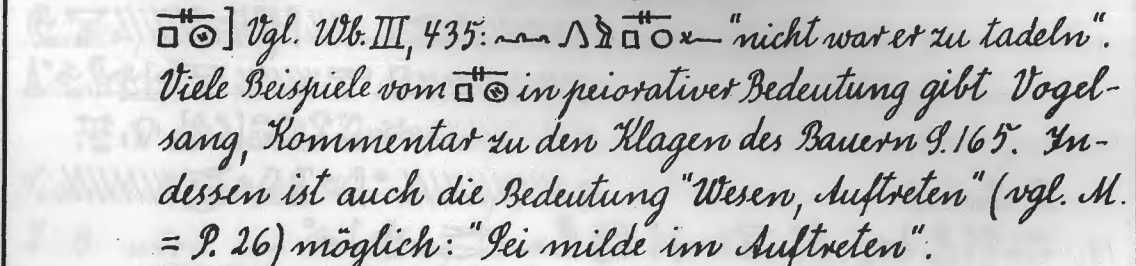 𓊃𓊪𓊗] Vgl. Wb. III, 435: "nicht war er zu tadeln".
Viele Beispiele vom 𓊃𓊪𓊗 in peiorativer Bedeutung gibt Vogel-
sang, Kommentar zu den Klagen des Bauern S. 165. In-
dessen ist auch die Bedeutung "Wesen, Auftreten" (vgl. M.
= S. 26) möglich: "Sei milde im Auftreten".